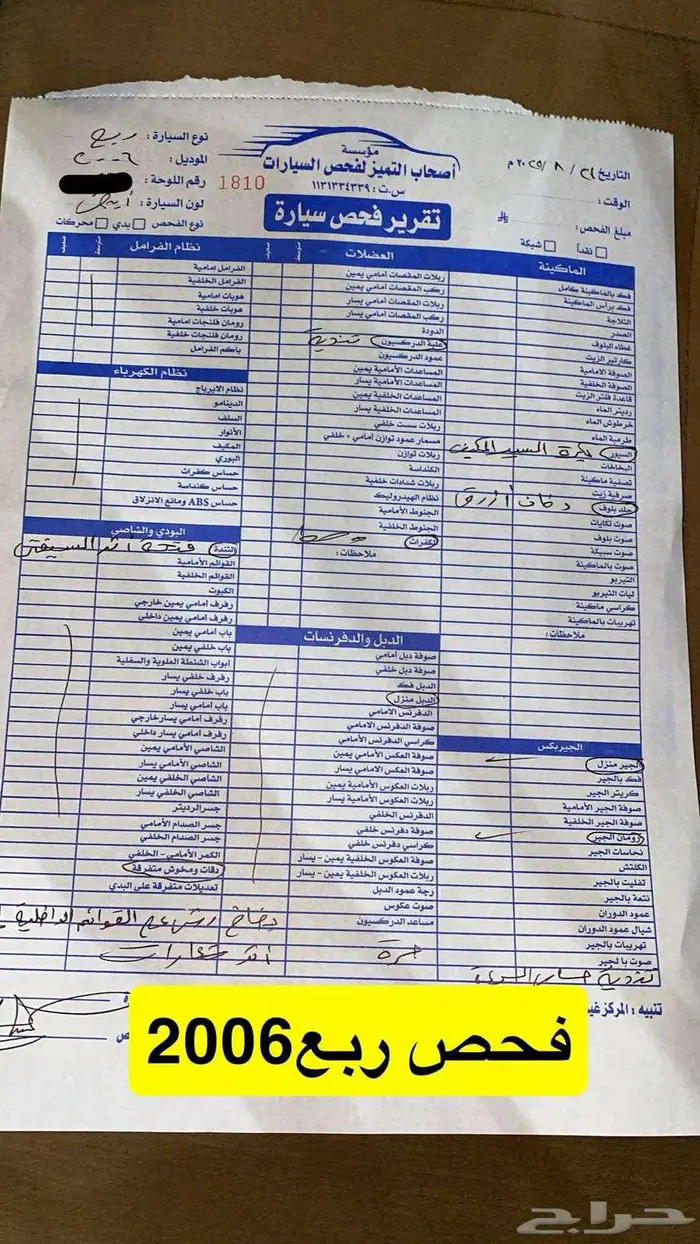 مؤسسة
أصحاب التميز لفحص السيارات
س.ت : ١١٣١٣٣٤٣٣٩
تقرير فحص سيارة
1810
التاريخ ٢١ / ٨ / ٢٠٢٥ م
الوقت :
مبلغ الفحص :
نقداً شبكة
نوع السيارة : ربع
الموديل : ٢٠٠٦
رقم اللوحة :
لون السيارة : أبيض
نوع الفحص : بدي محركات
الماكينة
فك بالماكينة كامل
فك برأس الماكينة
الثلاجة
الصدر
غطاء البلوف
كارتير الزيت
الصوفة الامامية
الصوفة الخلفية
قاعدة فلتر الزيت
رديتر الماء
خرطوش الماء
طرمبة الماء
السيور
البخاخات
تصفية ماكينة
صرفية زيت
جلد بلوف دخان أزرق
صوت تكايات
صوت بلوف
صوت سبيكة
صوت بالماكينة
التيربو
ليات التيربو
كراسي ماكينة
تهريبات بالماكينة
ملاحظات :
الجيربكس
الجير منزل
فك بالجير
كريتر الجير
صوفة الجير الأمامية
صوفة الجير الخلفية
رومان الجير
نحاسات الجير
الكلتش
تفليت بالجير
نتعة بالجير
عمود الدوران
شيال عمود الدوران
تهريبات بالجير
صوت با لجير
العضلات
متوسط
ضعيف
ربلات المقصات امامي يمين
ركب المقصات امامي يمين
ربلات المقصات امامي يسار
ركب المقصات امامي يسار
الدودة
علبة الدركسيون تندية
عمود الدركسيون
المساعدات الأمامية يمين
المساعدات الأمامية يسار
المساعدات الخلفية يمين
المساعدات الخلفية يسار
ربلات سست خلفي
مسمار عمود توازن امامي + خلفي
ربلات توازن
الكنداسة
ربلات شدادات خلفية
نظام الهيدروليك
الجنوط الأمامية
الجنوط الخلفية
الكفرات وسط
ملاحظات :
الدبل والدفرنسات
صوفة دبل امامي
صوفة دبل خلفي
الدبل فك
الدبل منزل
الدفرنس الامامي
صوفة الدفرنس الامامي
كراسي الدفرنس الأمامي
صوفة العكس الأمامي يمين
صوفة العكس الامامي يسار
ربلات العكوس الأمامية يمين
ربلات العكوس الأمامية يسار
الدفرنس الخلفي
صوفة دفرنس خلفي
كراسي دفرنس خلفي
صوفة العكوس الخلفية يمين - يسار
ربلات العكوس الخلفية يمين - يسار
رجة عمود الدبل
صوت عكوس
مساعد الدركسيون
نظام الفرامل
متوسط
ضعيف
الفرامل امامية
الفرامل الخلفية
هوبات امامية
هوبات خلفية
رومان فلنجات امامية
رومان فلنجات خلفية
باكم الفرامل
نظام الكهرباء
نظام الايرباج
الدينامو
السلف
الأنوار
المكيف
البوري
حساس كفرات
حساس كنداسة
حساس ABS ومانع الانزلاق
البودي والشاصي
القوائم الأمامية
القوائم الخلفية
الكبوت
رفرف امامي يمين خارجي
رفرف امامي يمين داخلي
باب امامي يمين
باب خلفي يمين
ابواب الشنطة العلوية والسفلية
رفرف خلفي يسار
باب خلفي يسار
باب امامي يسار
رفرف امامي يسارخارجي
رفرف امامي يسار داخلي
الشاصي الأمامي يمين
الشاصي الأمامي يسار
الشاصي الخلفي يمين
الشاصي الخلفي يسار
جسر الرديتر
جسر الصدام الأمامي
جسر الصدام الخلفي
الكمر الأمامي - الخلفي
دقات ومخوش متفرقة
تعديلات متفرقة على البدي
القوائم الداخلية
تنبيه : المركز غير
فحص ربع2006
حراج